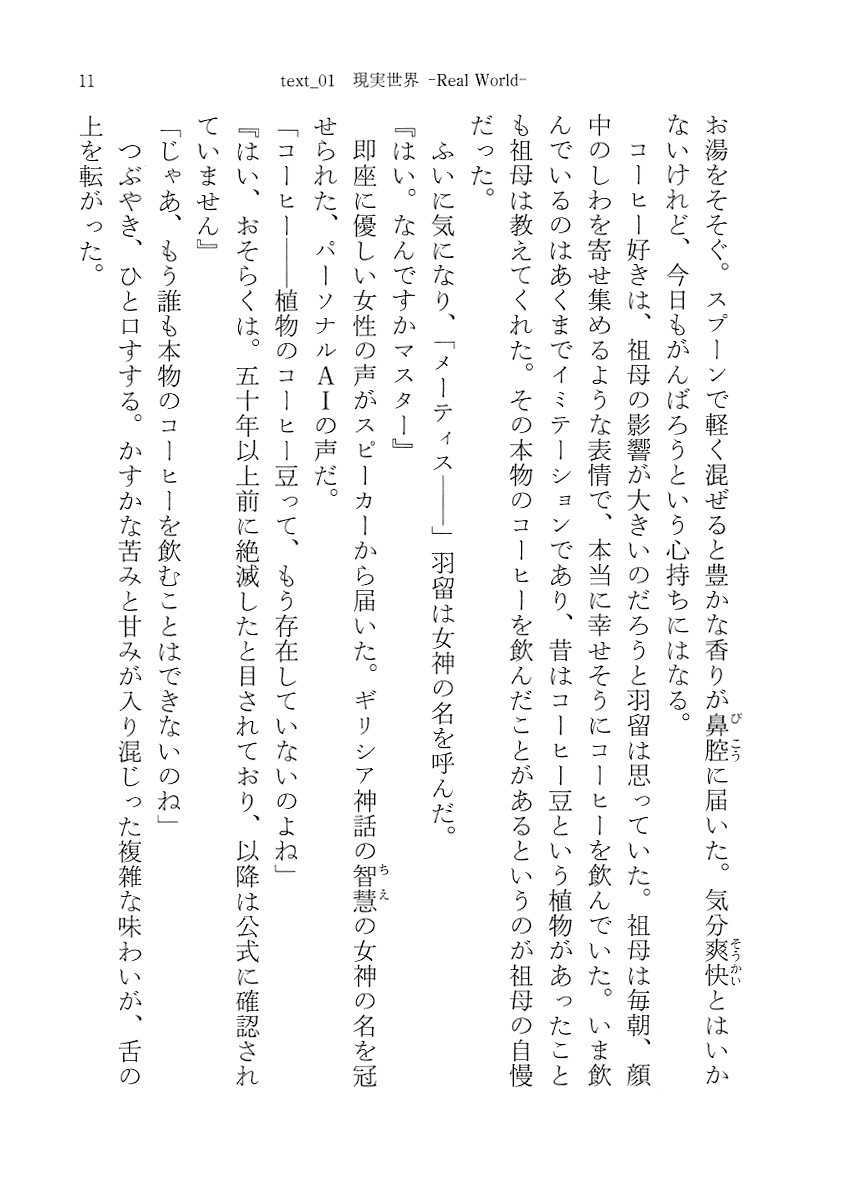 11
text_01　現実世界 -Real World-
お湯をそそぐ。スプーンで軽く混ぜると豊かな香りが鼻腔に届いた。気分爽快とはいか
ないけれど、今日もがんばろうという心持ちにはなる。
　コーヒー好きは、祖母の影響が大きいのだろうと羽留は思っていた。祖母は毎朝、顔
中のしわを寄せ集めるような表情で、本当に幸せそうにコーヒーを飲んでいた。いま飲
んでいるのはあくまでイミテーションであり、昔はコーヒー豆という植物があったこと
も祖母は教えてくれた。その本物のコーヒーを飲んだことがあるというのが祖母の自慢
だった。
　ふいに気になり、「メーティス――」羽留は女神の名を呼んだ。
『はい。なんですかマスター』
　即座に優しい女性の声がスピーカーから届いた。ギリシア神話の智慧の女神の名を冠
せられた、パーソナルＡＩの声だ。
「コーヒー――植物のコーヒー豆って、もう存在していないのよね」
『はい、おそらくは。五十年以上前に絶滅したと目されており、以降は公式に確認され
ていません』
「じゃあ、もう誰も本物のコーヒーを飲むことはできないのね」
　つぶやき、ひと口すする。かすかな苦みと甘みが入り混じった複雑な味わいが、舌の
上を転がった。